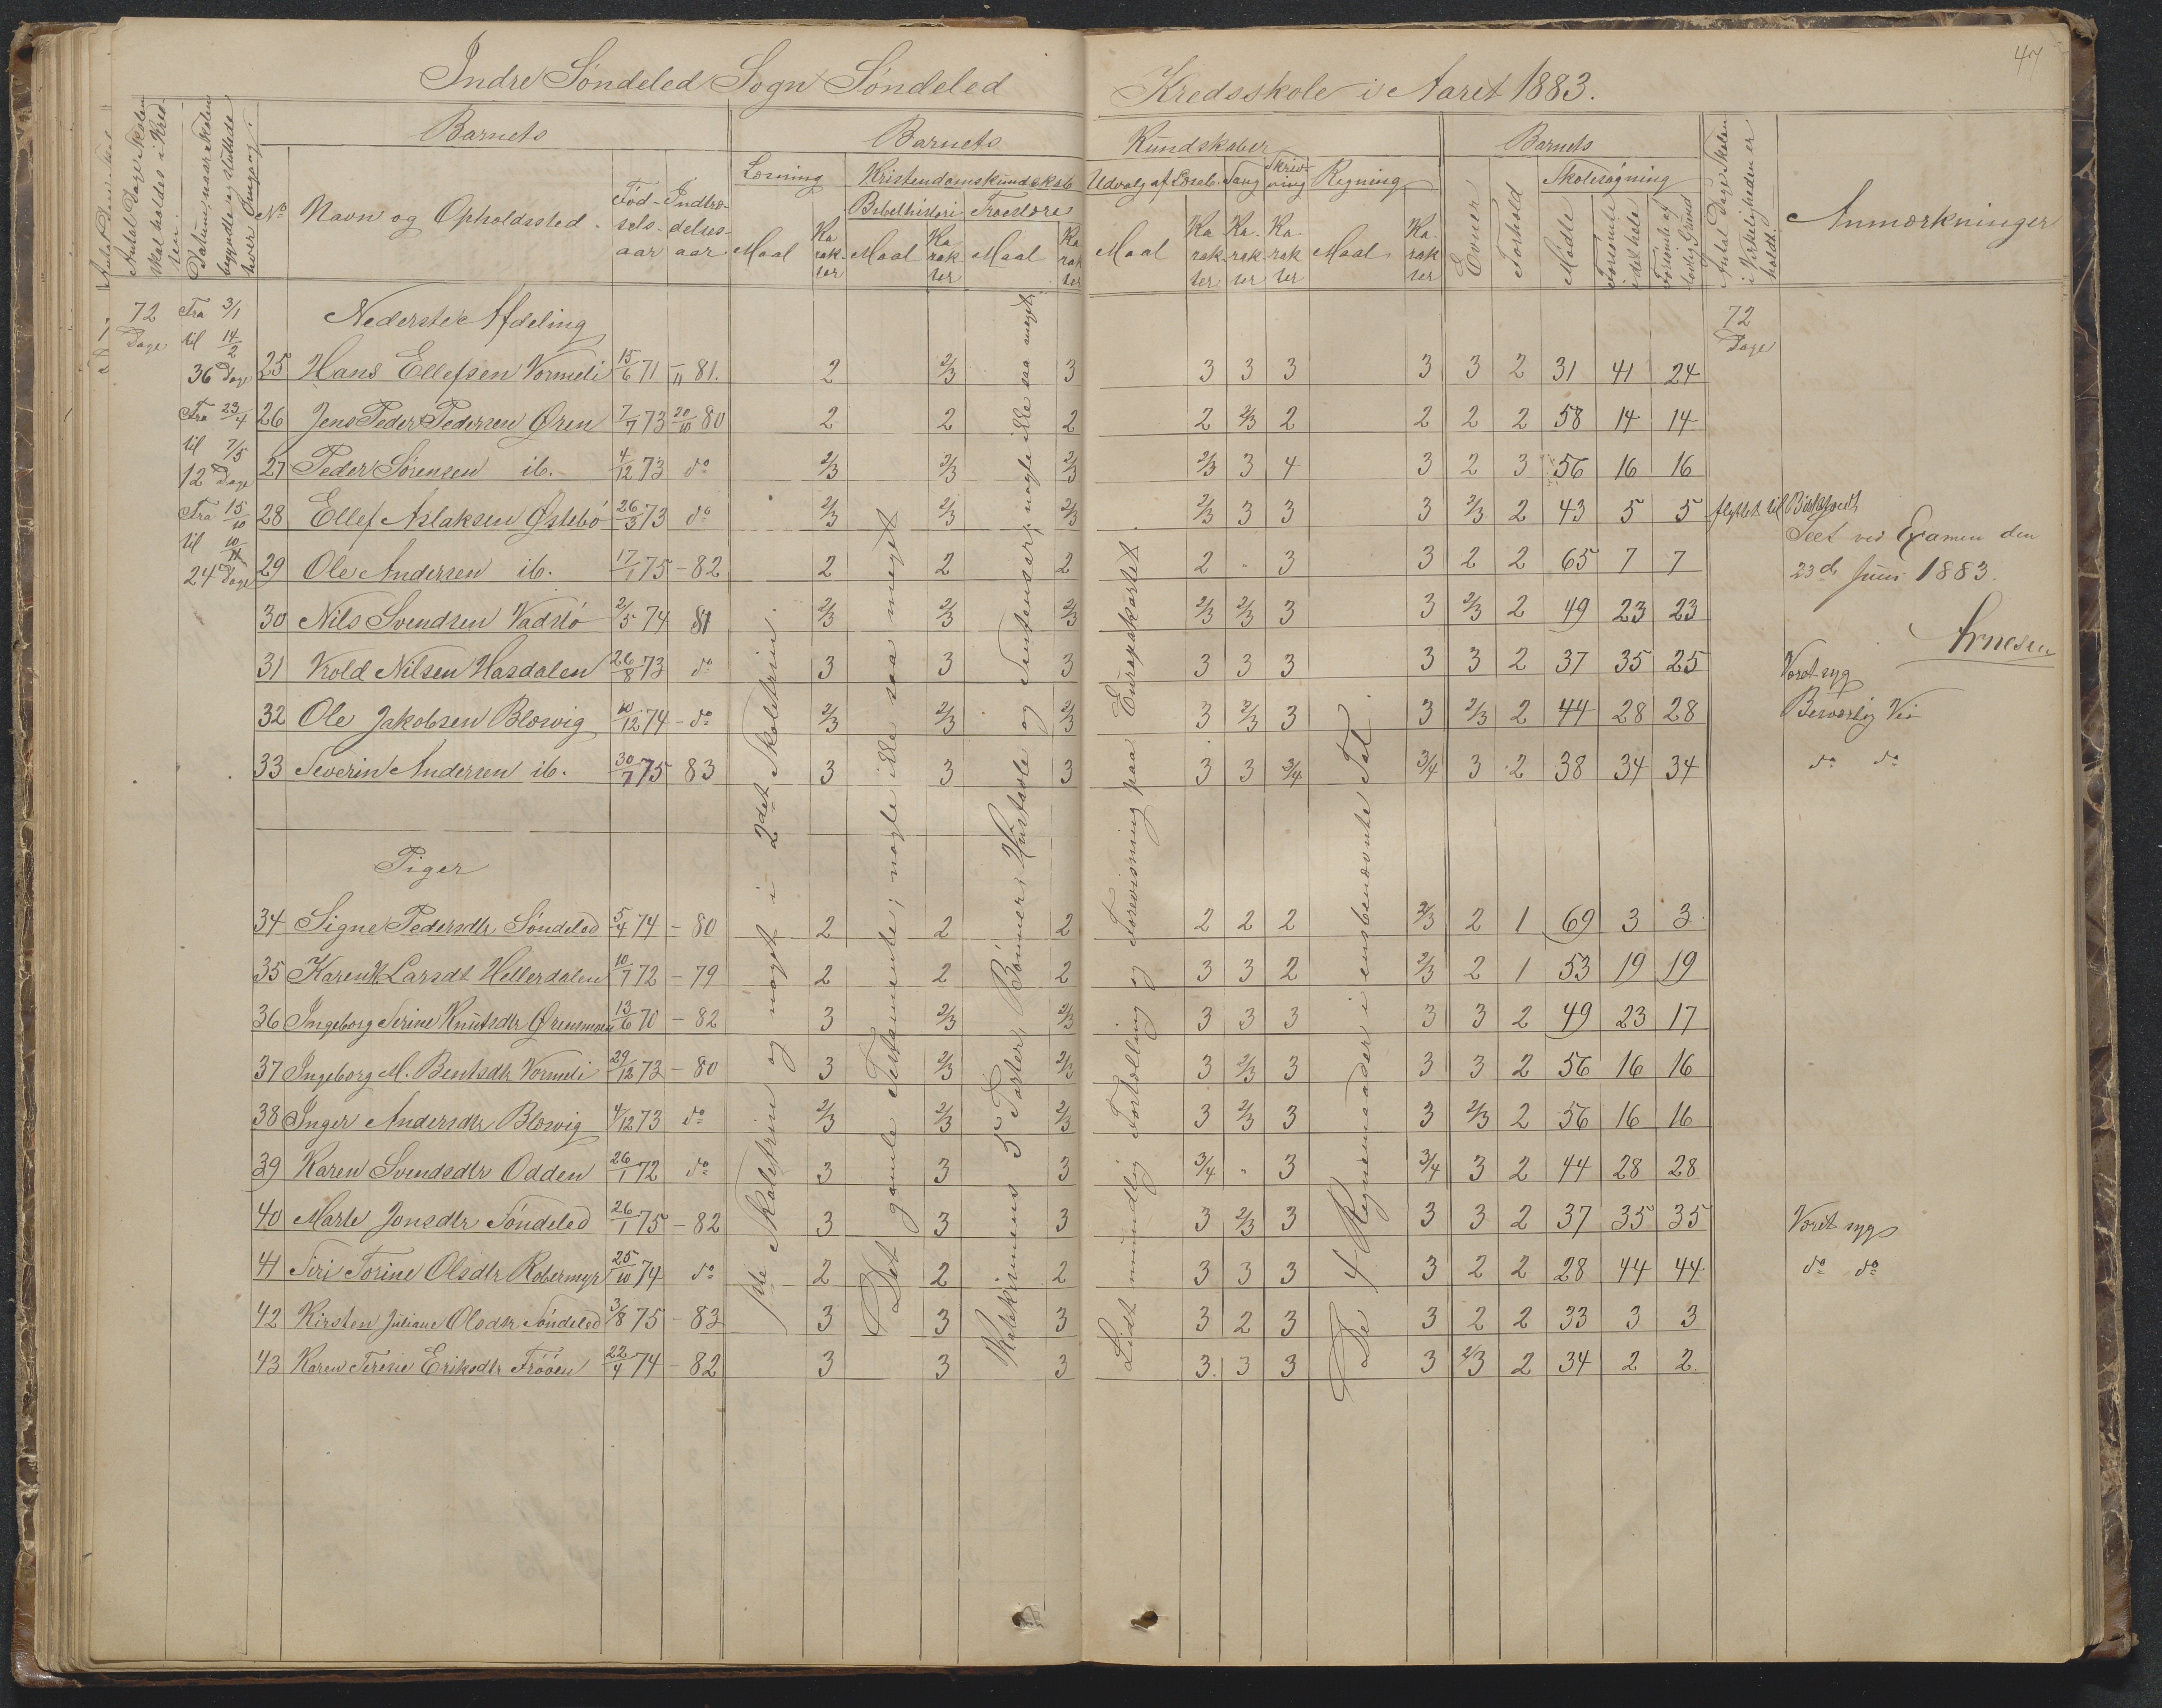 47
Indre Söndeled Sogn Söndeled Kredsskole i Aaret 1883.
Antal Dage Skolen skal holdes i Kredsen.
Datum, naar Skolen begyndte og sluttede hver Gang.
No
Barnets
Navn og Opholdssted.
Fødselsaar
Indtrædelsesaar
Barnets Kundskaber
Læsning Kristendomskundskab Udvalg af Læseb. Sang Skrivning Regning
Bibelhistori Troeslære
Maal Karakter Maal Karakter Maal Karakter Maal Karakter Karakter Karakter Maal Karakter
Barnets
Evner Forhold Skolesøgning
Mødte Forsømte i det hele Forsømte af lovlig Grund
Antal Dage Skolen i Virkeligheden er holdt.
Anmærkninger
72 Dage
Fra 3/1 til 14/2 36 Dage
Fra 23/4 til 7/5 12 Dage
Fra 15/10 til 10/11 24 Dage
72 Dage
Nederste Afdeling
25 Hans Ellefsen Vormeli 15/6 71 – 11 81. 2 2/3 3 3 3 3 3 3 2 31 41 24
26 Jens Peder Pedersen Øren 7/7 73 20/10 80 2 2 2 2 2/3 2 2 2 2 58 14 14
27 Peder Sørensen ib. 4/12 73 do 2/3 2/3 2/3 2/3 3 4 3 2 3 56 16 16
28 Ellef Aslaksen Østebö 26/3 73 do 2/3 2/3 2/3 2/3 3 3 3 2/3 2 43 5 5 flyttet til
29 Ole Andersen ib. 17/1 75 – 82 2 2 2 2 " 3 3 2 2 65 7 7
Seet ved Examen den
23de Juni 1883.
Arnesen
30 Nils Svendsen Vadstö 2/5 74 81 2/3 2/3 2/3 2/3 2/3 3 3 2/3 2 49 23 23
31 Vrold Nilsen Hasdalen 26/8 73 do 3 3 3 3 3 3 3 3 2 37 35 25 Været syg
32 Ole Jakobsen Blævig 10/12 74 – do 2/3 2/3 2/3 3 2/3 3 3 2/3 2 44 28 28 Besværlig Vei
33 Severin Andersen ib. 30/7 75 83 3 3 3 3 3 3/4 3/4 3 2 38 34 34 do do
Piger
34 Signe Pedersdtr Söndeled 5/4 74 – 80 2 2 2 2 2 2 2/3 2 1 69 3 3
35 Karen H. Larsdt Hellerdalen 10/7 72 – 79 2 2 2 3 3 2 2/3 2 1 53 19 19
36 Ingeborg Serine Knutsdtr Ørensmoen 13/6 70 – 82 3 2/3 2/3 3 3 3 3 3 2 49 23 17
37 Ingeborg M. Bentsdtr Vormeli 29/12 73 – 80 3 2/3 2/3 3 2/3 3 3 3 2 56 16 16
38 Inger Andersdtr Blævig 4/12 73 do 2/3 2/3 2/3 3 2/3 3 3 2/3 2 56 16 16
39 Karen Svendsdtr Odden 26/1 72 do 3 3 3 3/4 " 3 3/4 3 2 44 28 28
40 Marte Jonsdtr Söndeled 26/1 75 – 82 3 3 3 3 2/3 3 3 3 2 37 35 35 Været syg
41 Siri Torine Olsdtr Robermyr 25/10 74 do 2 2 2 3 3 3 3 2 2 28 44 44 do do
42 Kirsten Juliane Olsdtr Söndeled 3/8 75 – 83 3 3 3 3 2 3 3 2 2 33 3 3
43 Karen Terese Eriksdtr Fröóen 22/4 74 – 82 3 3 3 3. 3 3 3 2/3 2 34 2 2.
1ste Skoletrin og noget i 2det Skoletrin.
Det gamle Testamente; nogle ikke saa meget
Katekismens 5 Parter, Bönner, Hustavle og Sentenser; nogle ikke saa meget.
Lidt mundtlig Fortælling og Forevisning paa Europakartet
De 4 Regnemaader i eensbenævnte Tal.